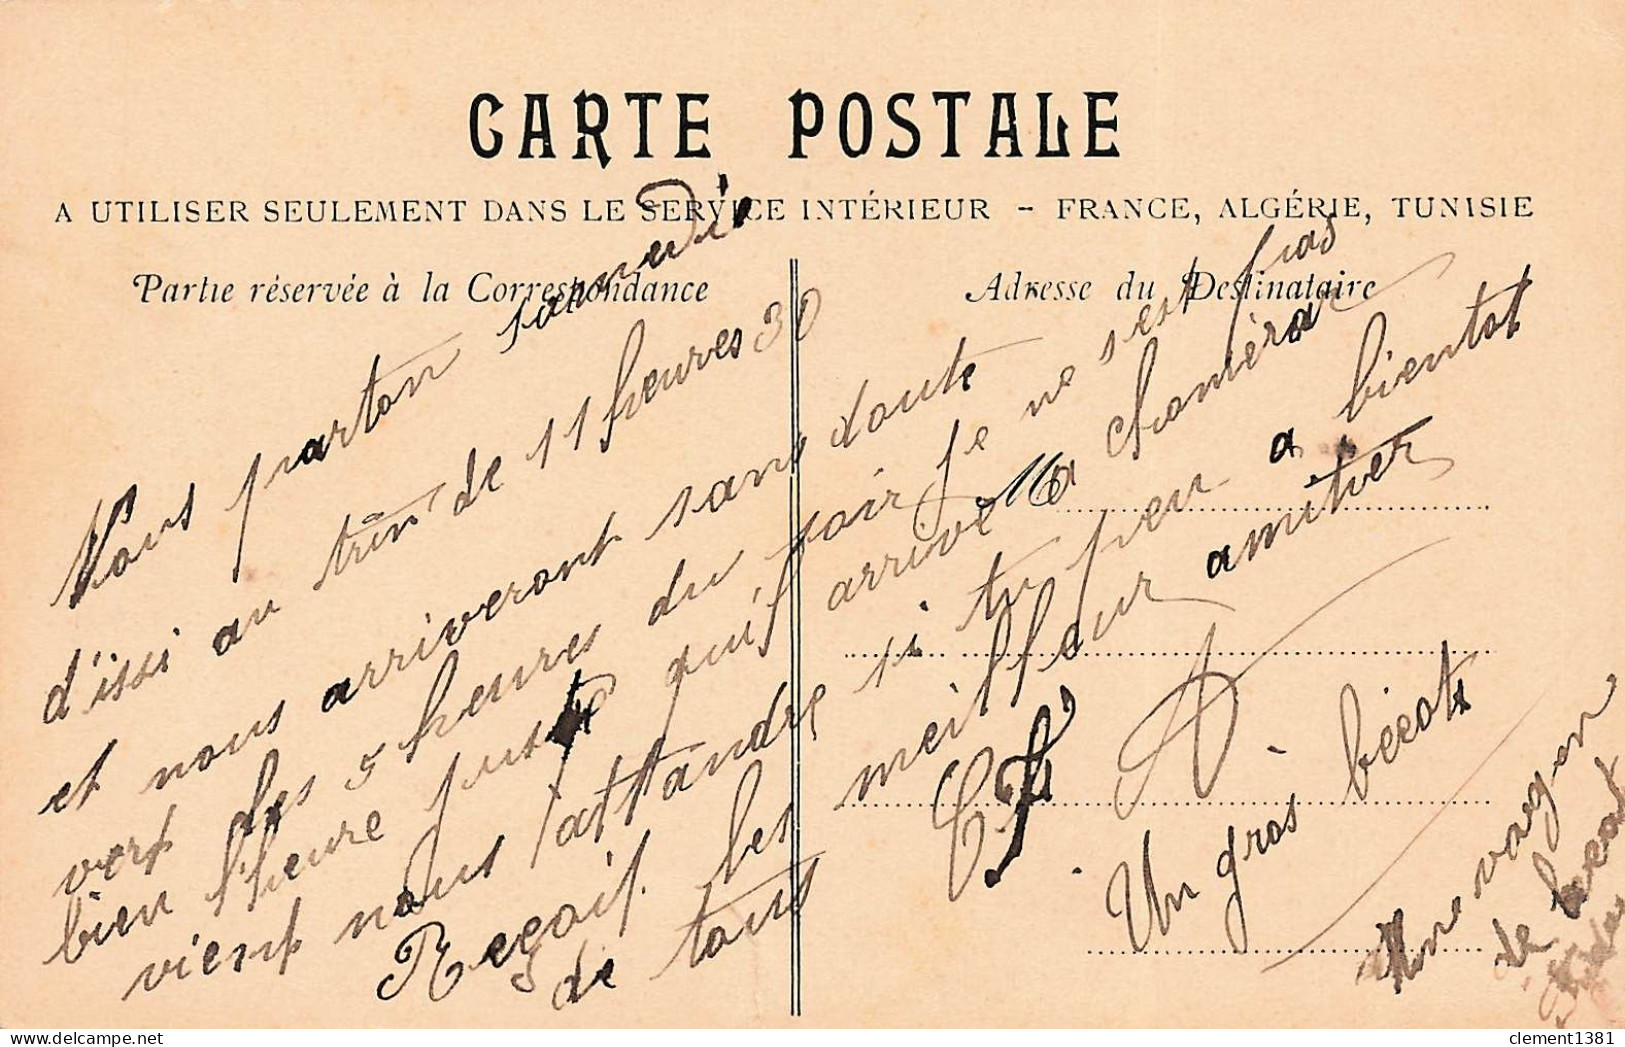 CARTE POSTALE
A UTILISER SEULEMENT DANS LE SERVICE INTÉRIEUR - FRANCE, ALGÉRIE, TUNISIE
Partie réservée à la Correspondance
Adresse du Destinataire
Nous parton samedie
d'issi au trin de 11 heures 30
et nous arriveront sans doute
vers les 5 heures du soir Je ne sest pas
bien l'heure juste qu'il arrive a chomérac
vient nous attandre si tu peu a bientot
Reçoit les meilleur amitier
de tous
Un gros bécots
Une vagon
de becot
clement1381